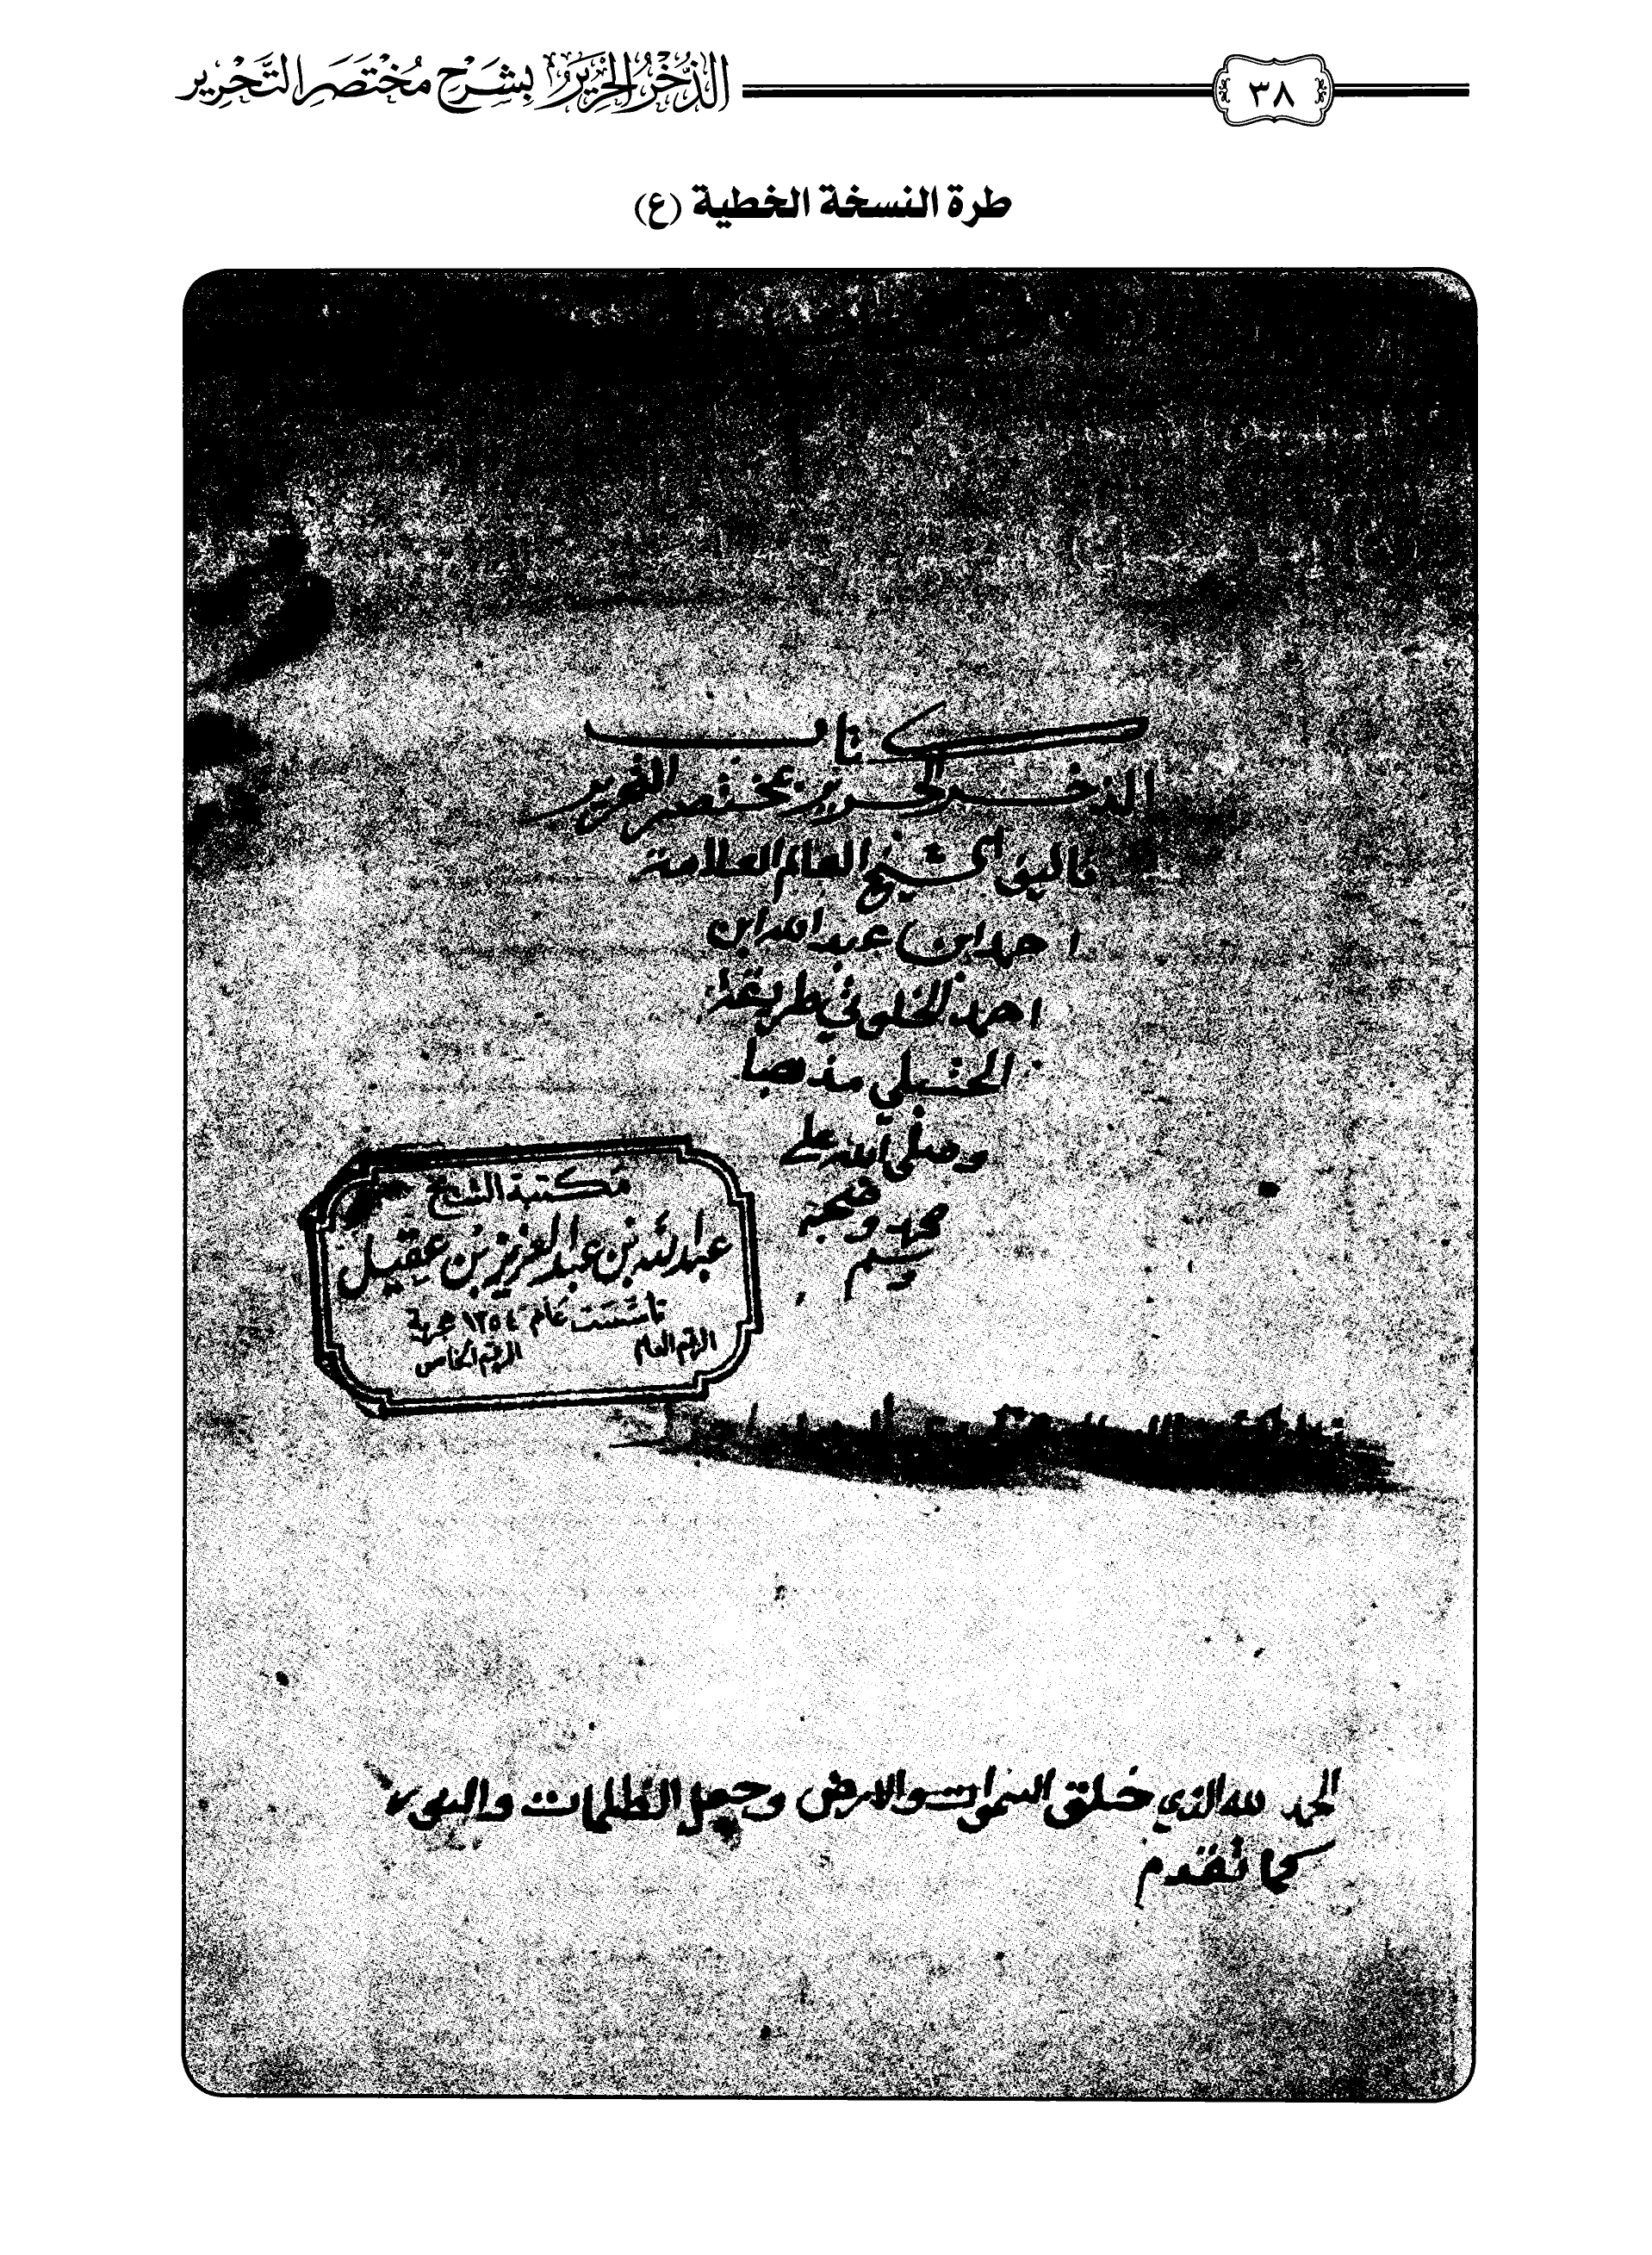 ٣٨
الذُّخْرُ الحَرِيرُ بِشَرْحِ مُخْتَصَرِ التَّحْرِير
طرة النسخة الخطية (ع)
كتاب
الذخر الحرير بمختصر التحرير
تاليف الشيخ العالم العلامة
احمد ابن عبد الله ابن
احمد الخلوتي طريقة
الحنبلي مذهبا
وصلى الله على
محمد وصحبه
وسلم
مكتبة الشيخ
عبد الله بن عبد العزيز بن عقيل
تأسست عام ١٣٥٤ هجرية
الرقم العام
الرقم الخاص
الحمد لله الذي خلق السموات والارض وجعل الظلمات والنور
كما تقدم